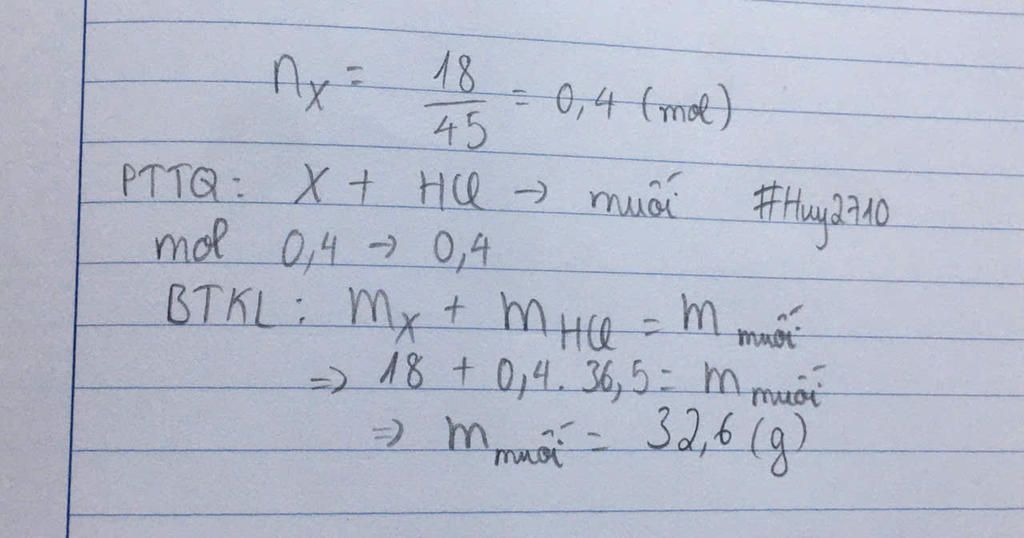 n_X = 18/45 = 0,4 (mol)
PTTQ: X + HCl → muối #Huy2710
mol 0,4 → 0,4
BTKL: m_X + m_HCl = m_muối
⇒ 18 + 0,4. 36,5 = m_muối
⇒ m_muối = 32,6 (g)